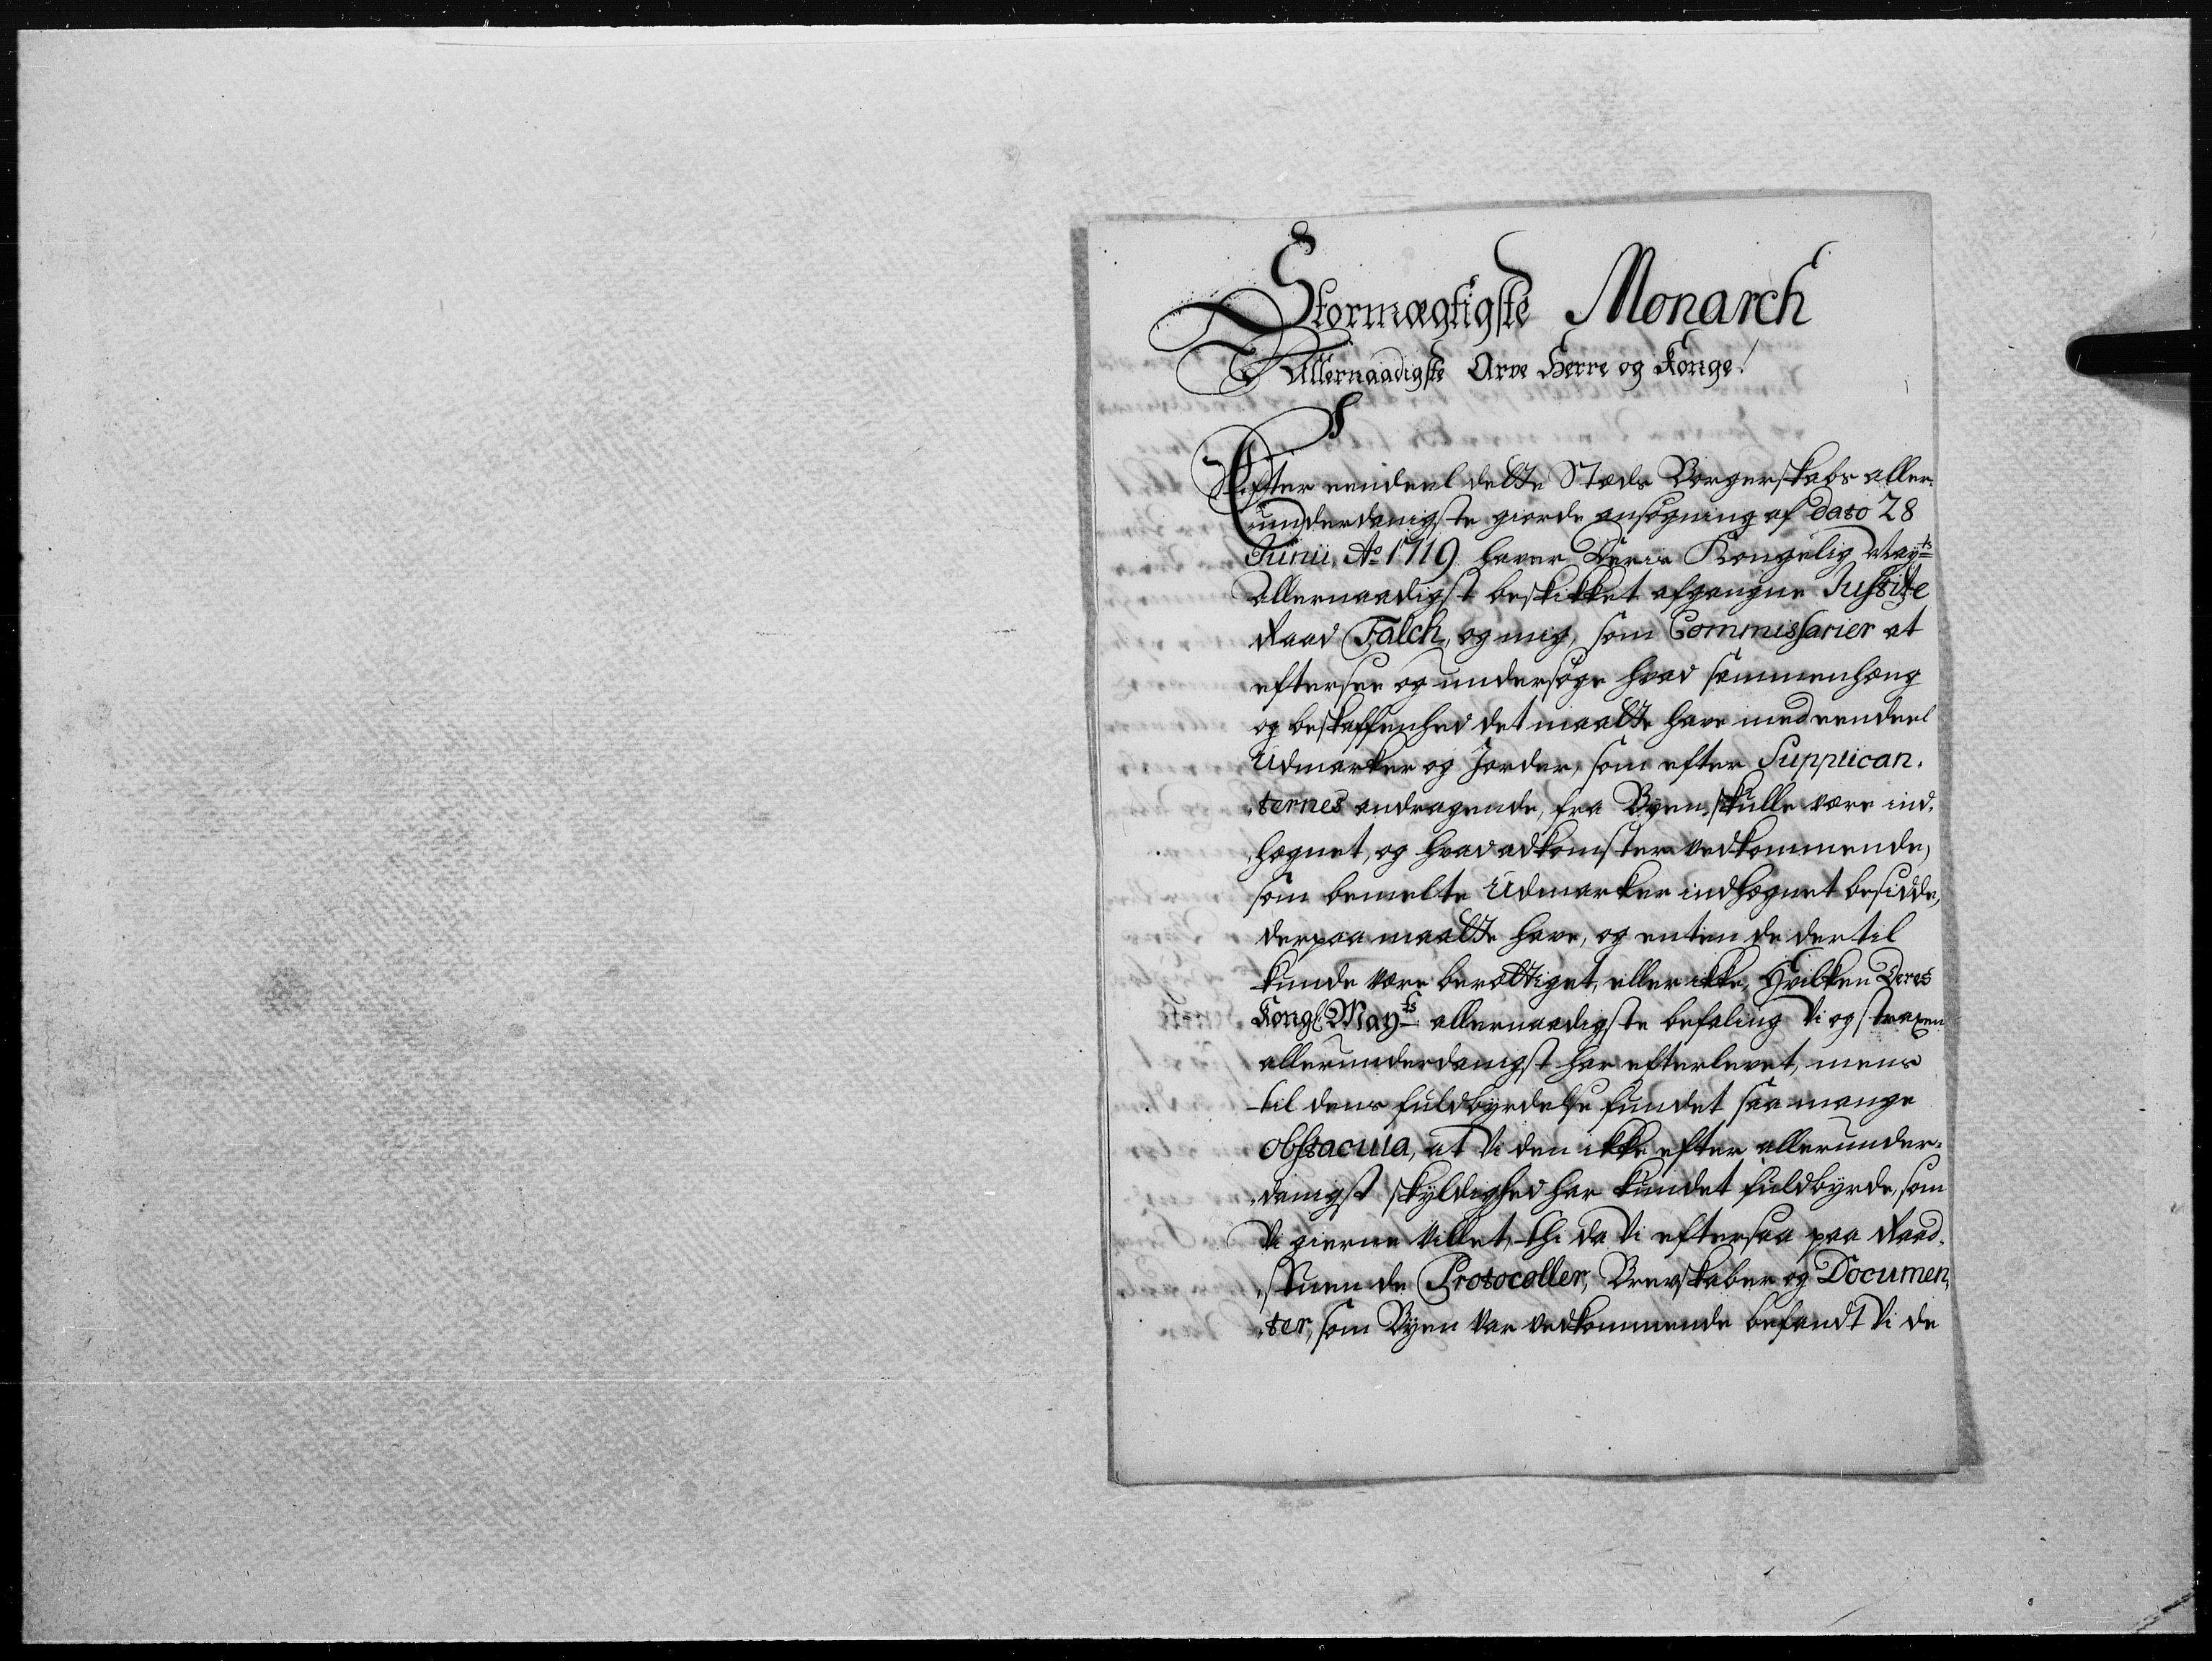 Stormægtigste Monarch
Allernaadigste Arve Herre og Konge!
Efter eendeel dette Stæds Borgerskabs aller-
underdanigste giorde ansøgning af dato 28
Junii, Ao 1719 haver Deris Kongelig Mayts
allernaadigst beskikket afgangne Justits
Raad Falch, og mig, som Commissarier at
eftersee og undersøge hvad sammenhæng
og beskaffenhed det maatte have med eendeel
Udmarker og Jorder, som efter Supplican-
ternes andragende, fra Byen skulle være ind-
hægnet, og hvad adkomster vedkommende,
som bemelte Udmarker indhægnet besidde,
derpaa maatte have, og enten de dertil
kunde være berættiget, eller ikke, Hvilken Deres
Kongl: Mayts allernaadigste befaling Vi og straxen
allerunderdanigst har efterlevet, mens
til dens fuldbyrdelse fundet saa mange
obstacula, at Vi den ikke efter allerunder-
danigst skyldighed har kundet fuldbyrde, som
Vi gierne villet, thi da Vi eftersaa paa Raad-
stuen de Protocoller, Brevskaber og Documen,
ter, som Byen var vedkommende befandt Vi de